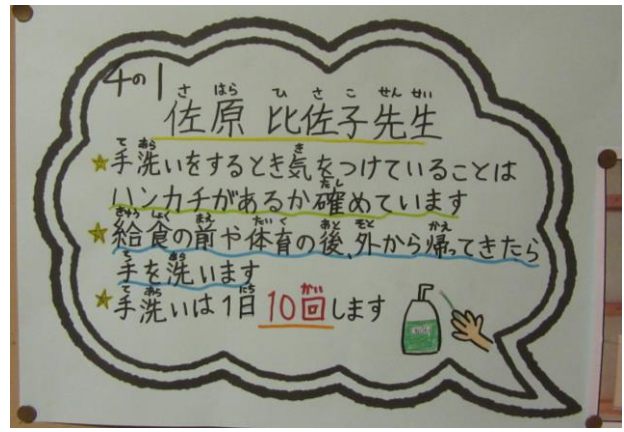 4の1
佐原 比佐子先生
★手洗いをするとき気をつけていることは
ハンカチがあるか確めています
★給食の前や体育の後、外から帰ってきたら
手を洗います
★手洗いは1日10回します